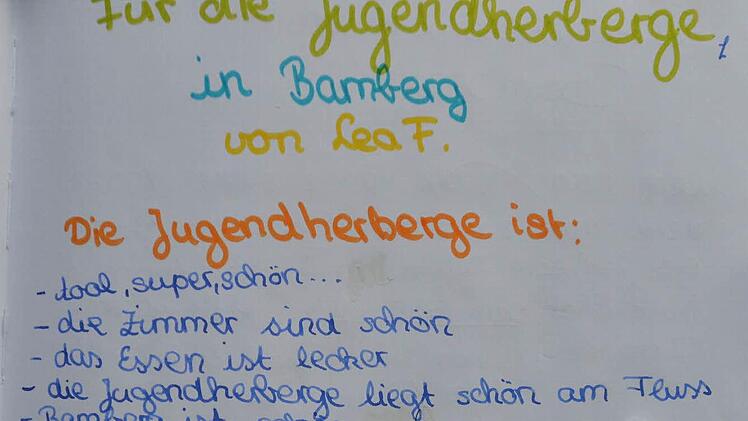 Für die Jugendherberge
in Bamberg
von Lea F.
Die Jugendherberge ist:
- tool, super, schön...
- die Zimmer sind schön
- das Essen ist lecker
- die Jugendherberge liegt schön am Fluss
- Bamberg ist